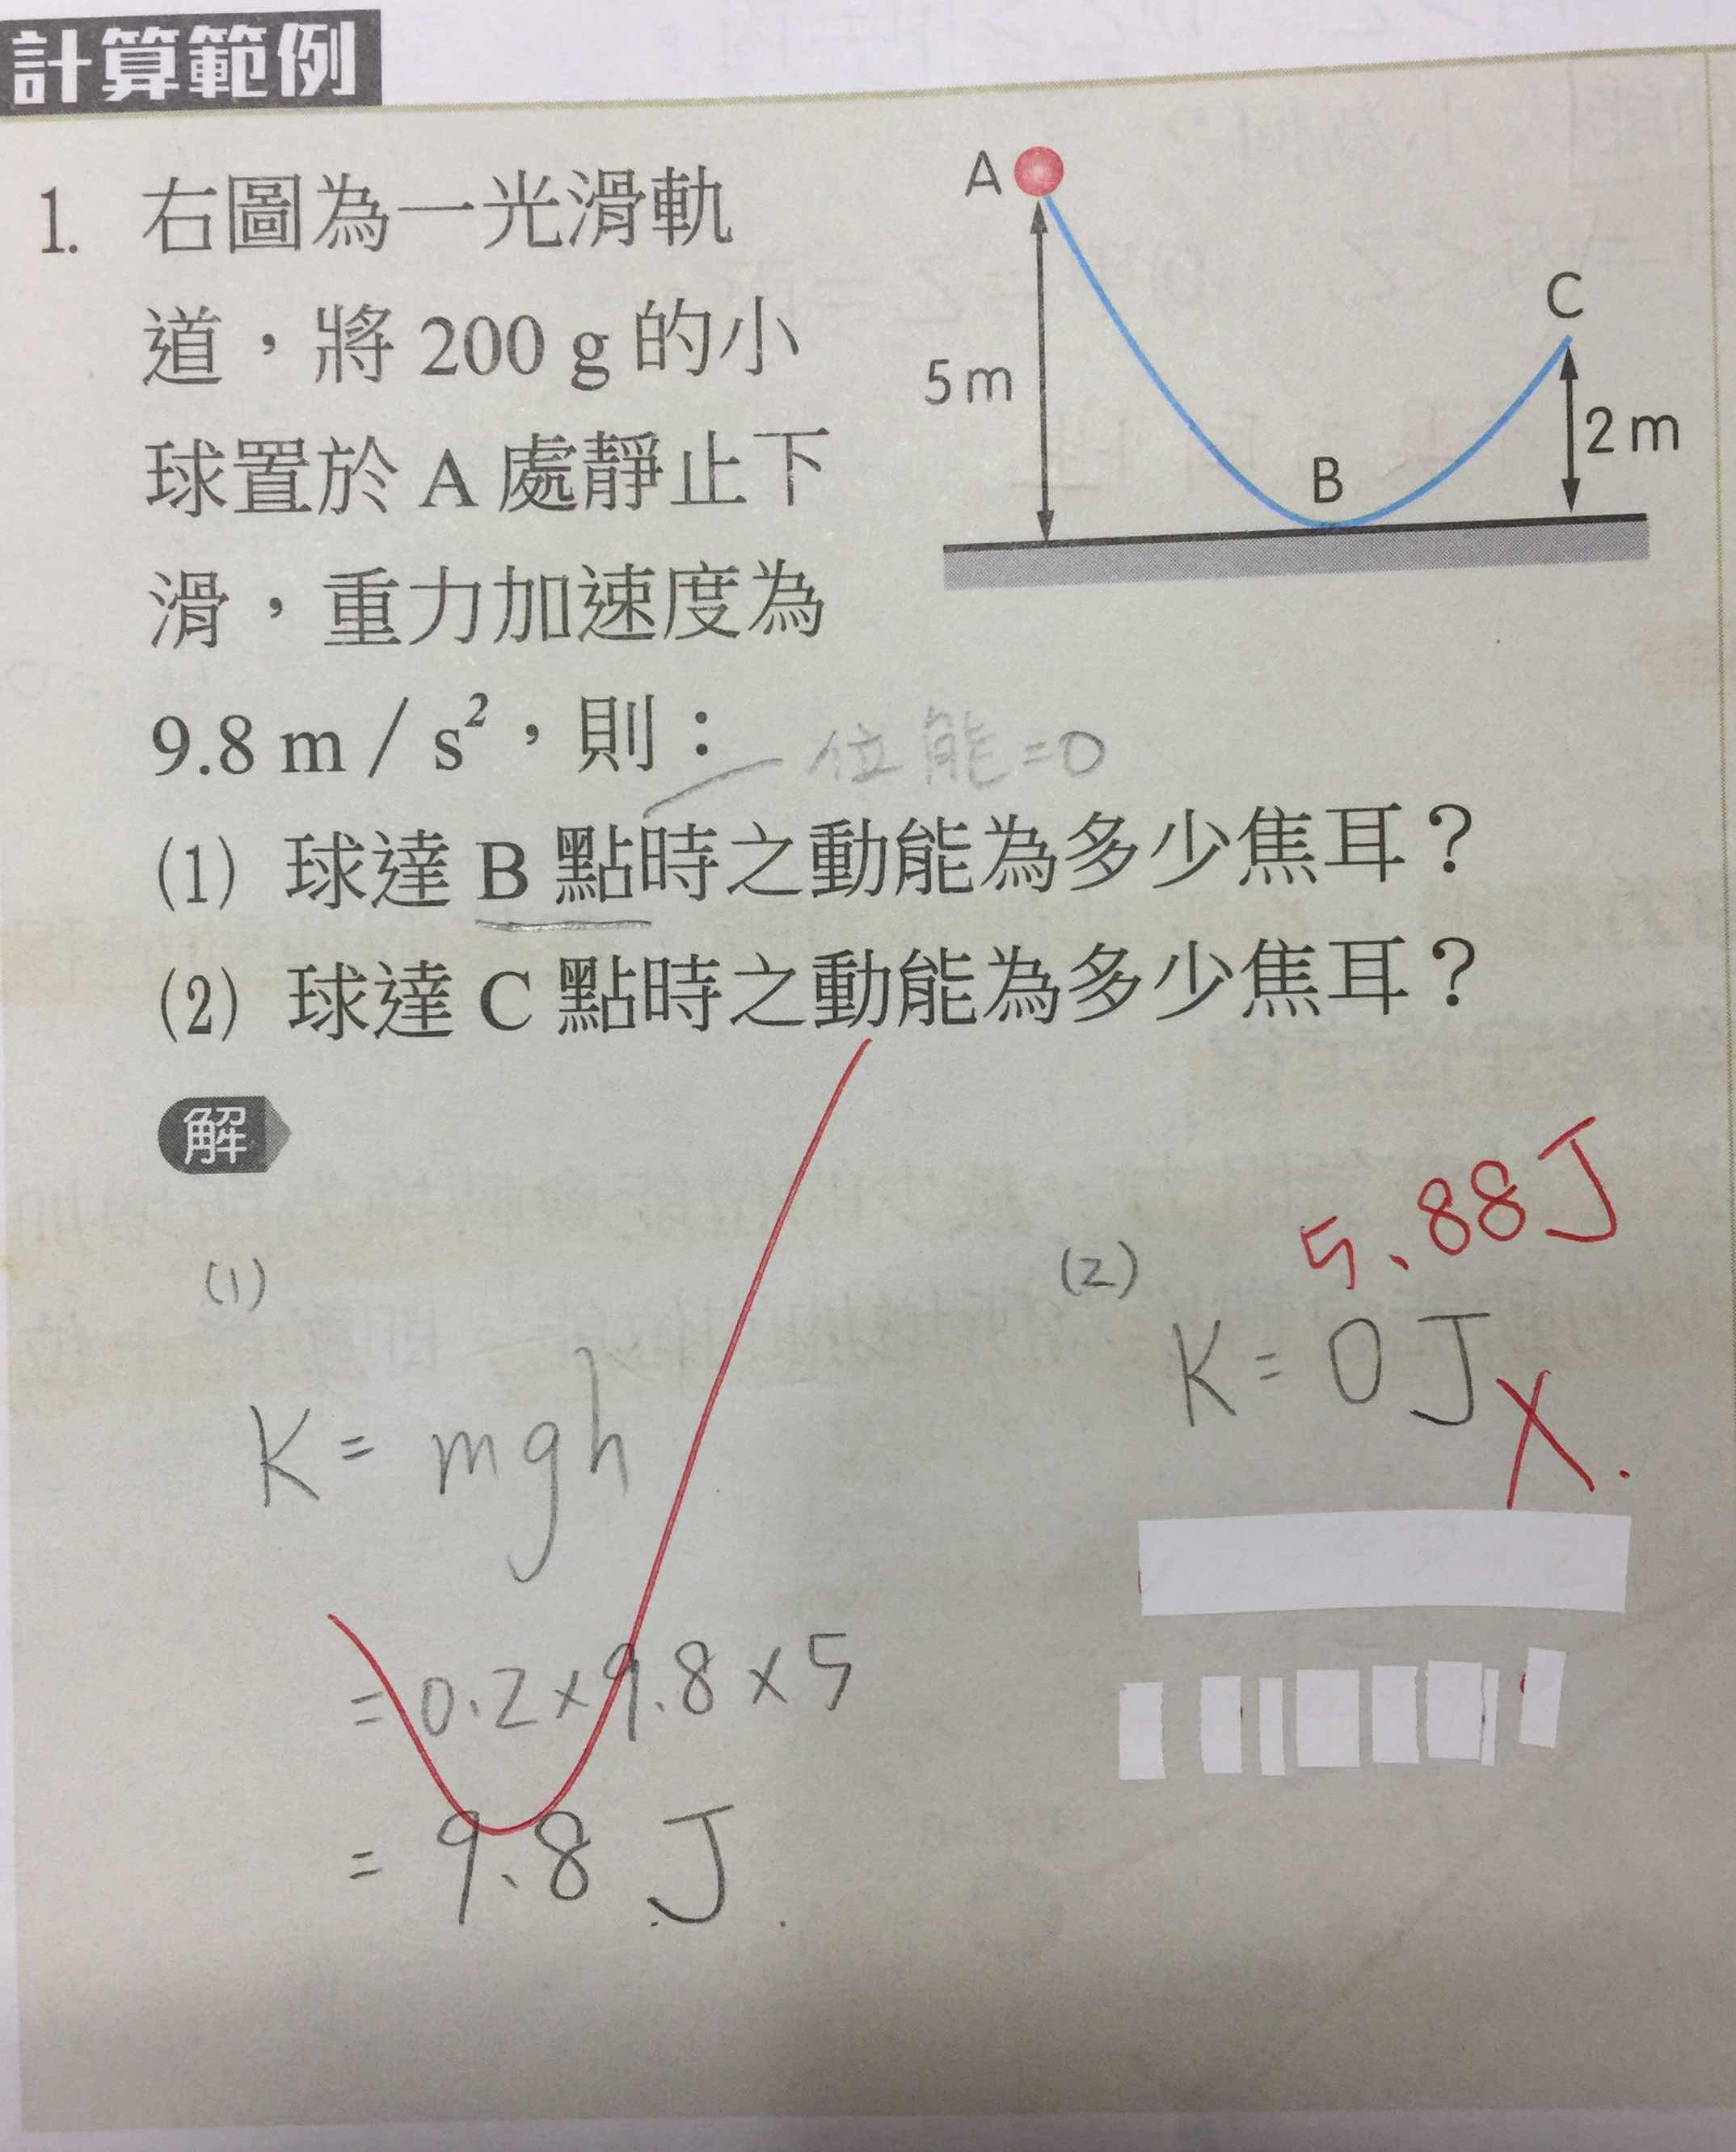 計算範例
1. 右圖為一光滑軌
道，將 200 g 的小
球置於 A 處靜止下
滑，重力加速度為
9.8 m / s²，則：
A
5 m
B
C
2 m
位能=0
(1) 球達 B 點時之動能為多少焦耳？
(2) 球達 C 點時之動能為多少焦耳？
解
(1)
K = mgh
= 0.2×9.8×5
= 9.8 J
(2)
5.88J
K = 0 J